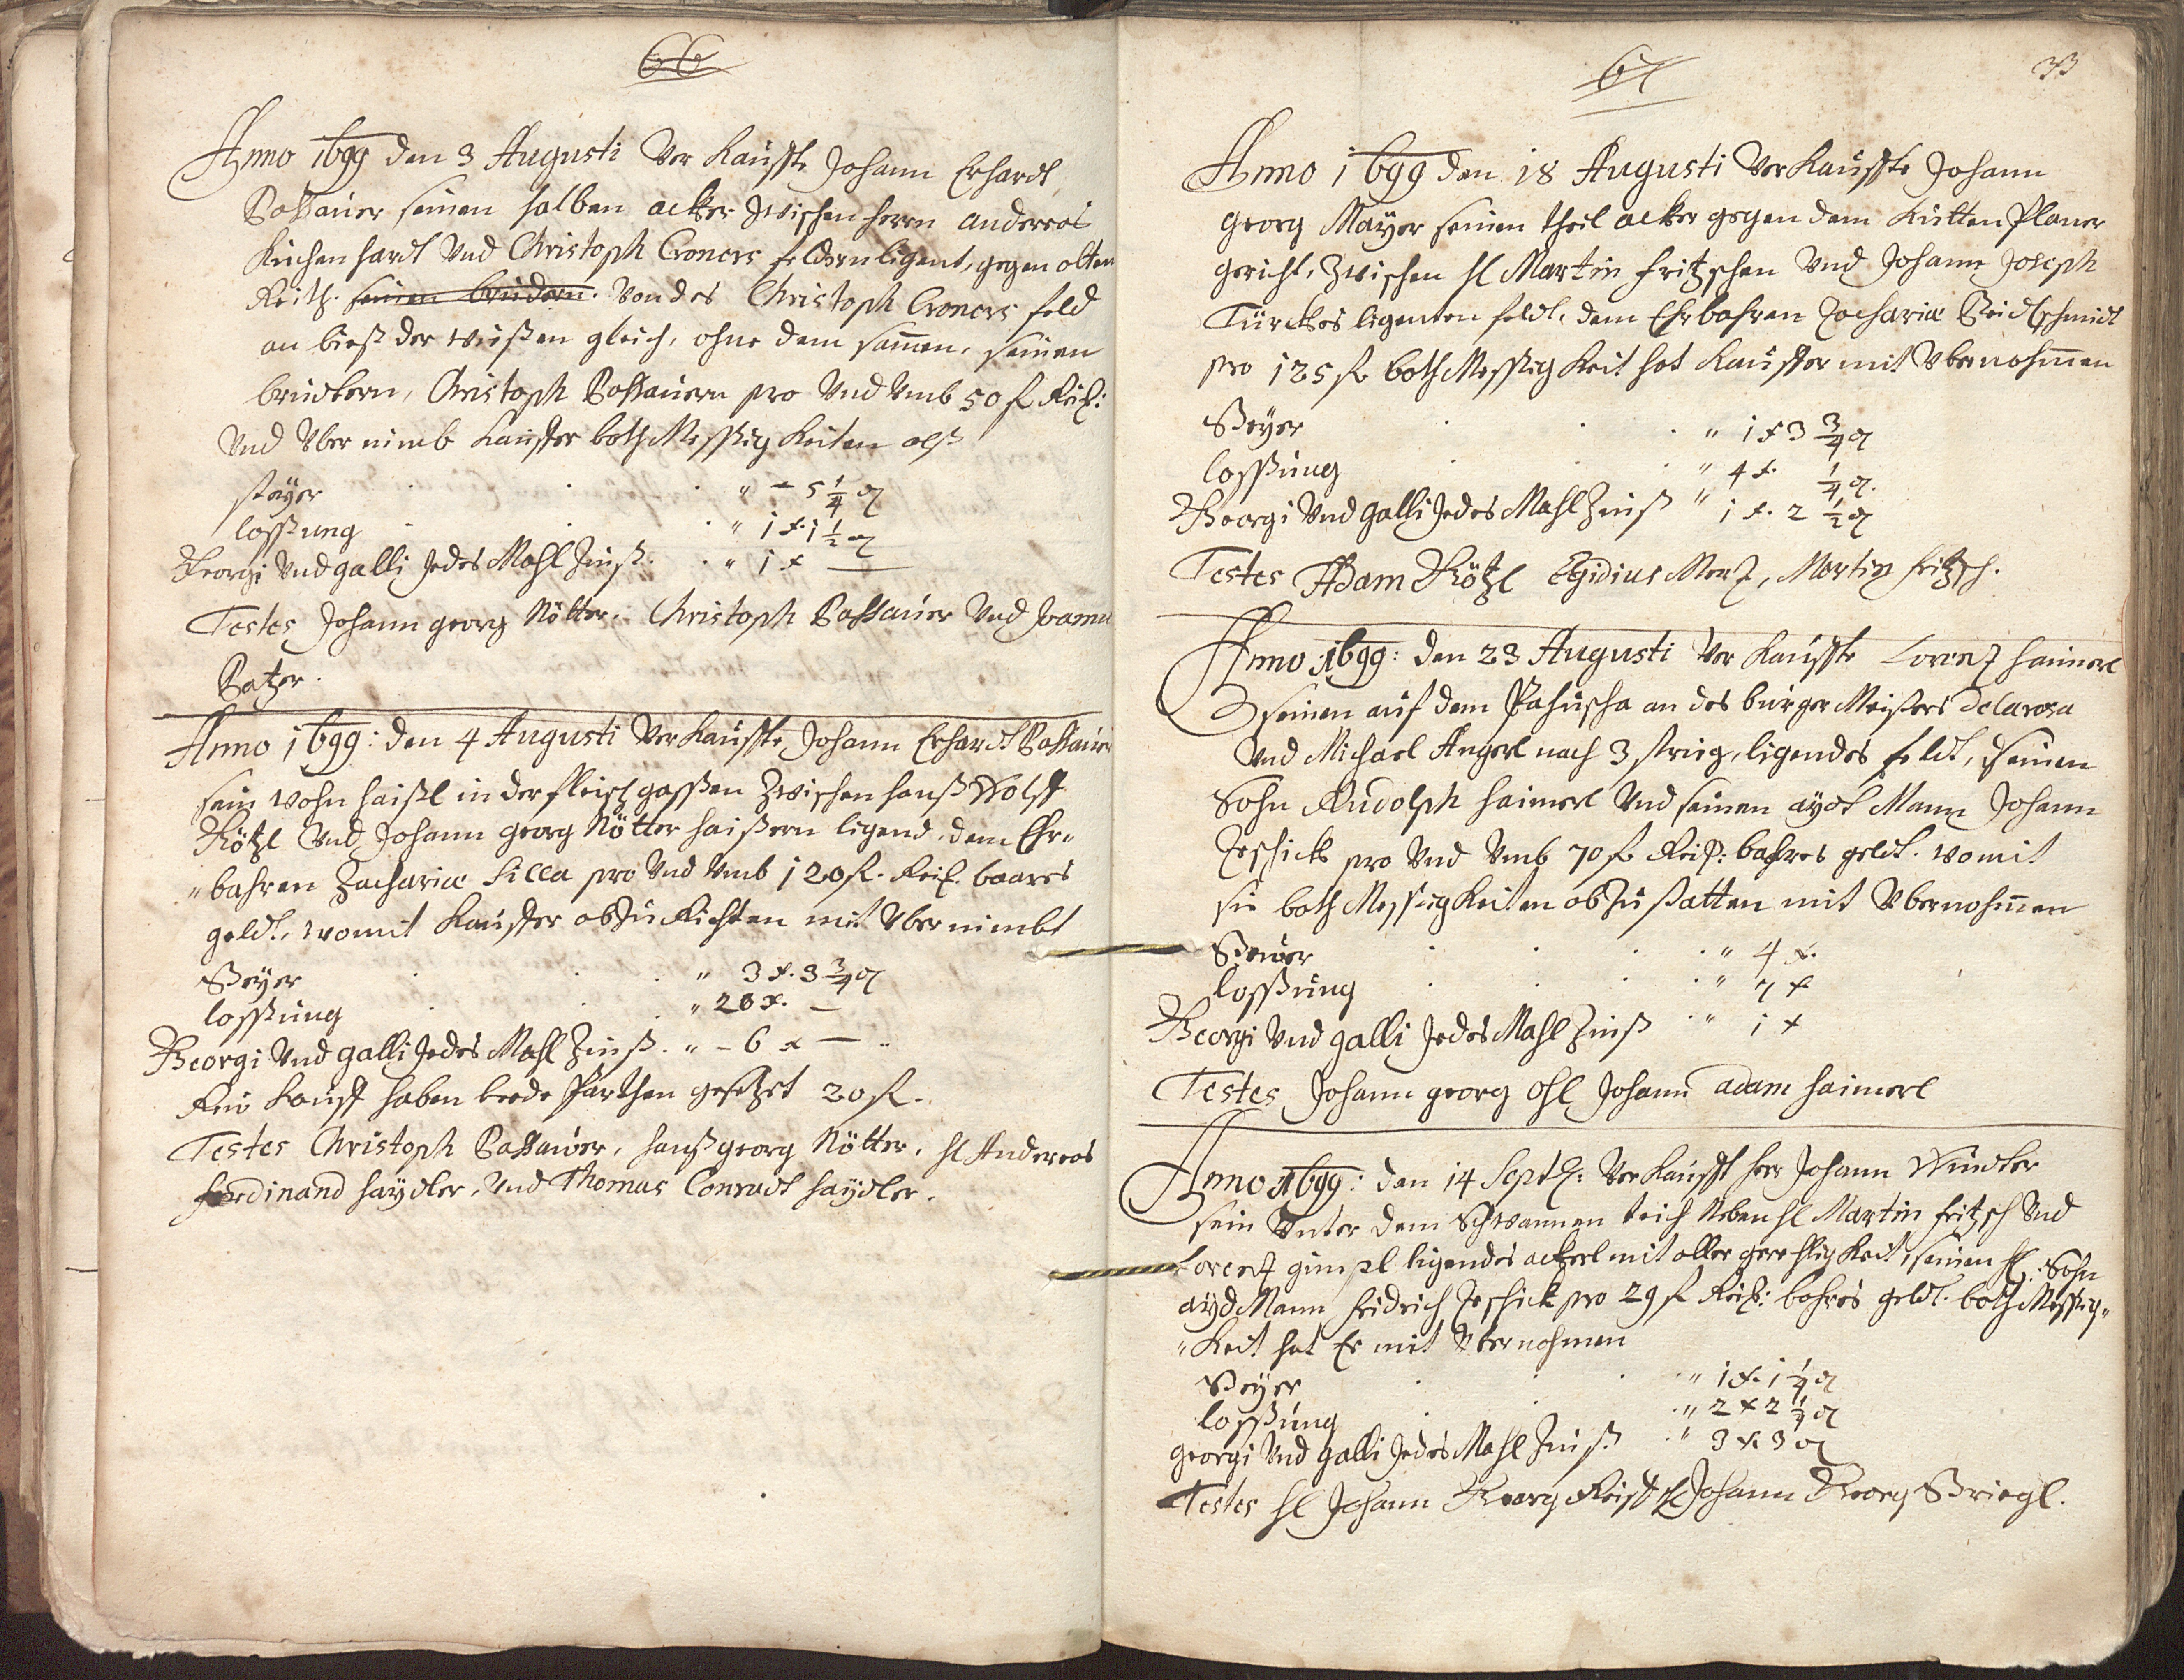 66
Anno 1699 den 3 Augusti Ver Kauffte Johann Erhardt
Passauer seinen halben acker zwischen herrn andereas
Kirchen hardt Vnd Christoph Croners feldern ligent, gegen alten
Reith. seinen brudern. Von des Christoph Croners feld
an bieß der wießen gleich, ohne dem samen, seinen
brudern, Christoph Passauern pro Vnd Vmb 50 f Rei:
Vnd Vber nimb Kauffer bothMessßigKeiten alß
steyer . . . " – 5 1/4 ₰
lossung . . " 1 x. 1 1/2 ₰
Georgi Vnd galli Jedes Mahl Zinß. . " 1 x —
Testes Johann georg Nötter, Christoph Passauer Vnd
Batzer.
Anno 1699: den 4 Augusti VerKauffte Johann Erhardt Passauer
sein wohn haißl in der fleischgassen Zwischen hanß Wolff
Kötzl Vnd Johann georg Nötter haißern ligend, dem Ehr„
„bahren Zachariæ Silla pro Vnd Vmb 120 f. Rei. baares
geldt, womit Kauffer abzuRichten mit Vbernimbt
Steyer . . . " 3 x. 3 3/4 ₰
lossung . . . " 20 x. —
Georgi Vnd galli Jedes Mahl Zinß. " – 6 x —
Rei Kauff haben beede Parthen gesetzet 20 f.
Testes Christoph Passauer, hanß georg Nötter, H Andereas
ferdinand haydler, Vnd Thomas Conradt haydler.
67
33
Anno 1699 den 18 Augusti VerKauffte Johann
georg Mayer seinen theil acker gegen dem Kuttenplaner
gericht, Zwischen H Martin fritzschen Vnd Johann Joseph
Türckes ligenten feldt, dem Ehrbahren Zachariæ Beidlschmidt
pro 125 f bothMessßigKeit hat Kauffer mit Vbernohmen
Steyer . . . " 1 x 3 3/4 ₰
lossung . . . " 4 x. 1/4 ₰.
Georgi Vnd galli Jedes Mahl Zinß " 1 x. 2 1/2 ₰
Testes Adam Kötzl Egidius Merz, Martin fritzsch.
Anno 1699: den 23 Augusti Ver Kauffte Lorenz haimerl
seinen auf dem Pahuscha an des burgerMeisters Delarosa
Vnd Michael Angerl nach 3 strieg, ligendes feldt, seinen
Sohn Rudolph haimerl Vnd seinen aydt Mann Johann
Jeschick pro Vnd Vmb 70 f Rei: bahres geldt. womit
sie bothMessßigKeiten abzustatten mit Vbernohmen
Steuer . . . " 4 x.
lossung . . . " 7 x
Georgi Vnd galli Jedes Mahl Zinß . " 1 x
Testes Johann georg ohl Johann adam haimerl
Anno 1699: den 14 Septb: VerKaufft herr Johann Windter
sein Vnter dem Schwannen teich Neben H Martin fritzsch Vnd
Lorentz gimpl ligendes ackerl mit aller gerechtigKeit, seinen H: Sohn
aydMann fridrich Jeschick pro 29 f Rei: bahres geldt. bothMessßig„
„Keit hat Er mit Vbernohmen
Steyer . . . " 1 x. 1 1/4 ₰
lossung . . . " 2 x 2 1/2 ₰
georgi Vnd galli Jedes Mahl Zinß . " 3 x. 3 ₰
Testes H Johann Georg H Johann Georg Striegl.